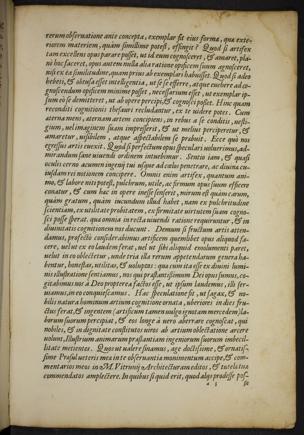 rerum obseruatione ante concepta, exemplar sit eius forma, quæ exte-
riorem materiem, quàm simillimè potest, effingit? Quòd si artifex
tam excellens opus parare posset, ut id eum cognosceret, & amaret, pla-
nè hoc faceret, opus autem nulla alia ratione opificem suum agnosceret,
nisi ex ea similitudine, quam prius ab exemplari habuisset. Quòd si adeo
hebeti, & obtusa esset intelligentia, ut se se efferre, atque euehere ad co-
gnoscendum opificem minimè posset, necessarium esset, ut exemplar ip-
sum eò se demitteret, ut ab opere percipi, & cognosci posset. Hinc quàm
reconditi cognitionis thesauri recludantur, ex te uidere potes. Cùm
æterna mens, æternam artem concipiens, in rebus à se conditis, uesti-
gium, uel imaginem suam impresserit, & ut melius perciperetur, &
amaretur, uisibilem, atque aspectabilem se præbuit. Ecce quò nos
egressus artis euexit. Quòd si perfectum opus speculari uoluerimus, ad-
mirandum sanè uiuendi ordinem intuebimur. Sentio iam, & quasi
oculis cerno acumen ingenij tui usque ad cælos penetrare, ac diuina cu-
iusdam rei notionem concipere. Omnis enim artifex, quantum ani-
mo, & labore niti potest, pulchrum, utile, ac firmum opus suum efficere
conatur, & cùm hæc in opere inesse senserit, mirum est quàm carum,
quàm gratum, quàm iucundum illud habet, nam ex pulchritudine
scientiam, ex utilitate probitatem, ex firmitate uirtutem suam cogno-
sci posse sperat. quæ omnia in recta uiuendi ratione requiruntur, & in
diuinitatis cognitionem nos ducunt. Demum si fructum artis atten-
damus, profectò considerabimus artificem quemlibet opus aliquod fa-
cere, uel ut ex eo laudem ferat, uel ut sibi aliquid emolumenti paret,
uelut in eo oblectetur, unde tria illa rerum appetendarum genera ha-
bentur, honestas, utilitas, & uoluptas: quæ cum ita esse ex diuini lumi-
nis illustratione sentiamus, nos qui præstantissimum Dei opus sumus, co-
gitabimus nos à Deo propter ea factos esse, ut ipsum laudemus, illi ser-
uiamus, in eo conquiescamus. Hæc speculatione sit, ut sagax, & no-
bilis natura hominum artium cognitione ornata, uberiores in dies fru-
ctus ferat, & ingentem (artificum tamen uulgo ignotam mercedem) la-
borum suorum percipiat, & eos longè à uero aberrare cognoscat, qui
nobiles, & in dignitate constitutos uiros ab artium oblectatione arcere
uolunt, Illustrium animarum præstantiam ingeniorum suorum imbecil-
litate metientes. Quos ut ualere sinamus, age doctissime, & ornatis-
sime Præsul ueteris mea in te obseruantiæ monimentum accipe, & com-
mentarios meos in M. Vitruuij Architecturam editos, & tutelæ tuæ
commendatos amplectere. In quibus si quid erit, quod alijs prodesse pos-
a 3 sit